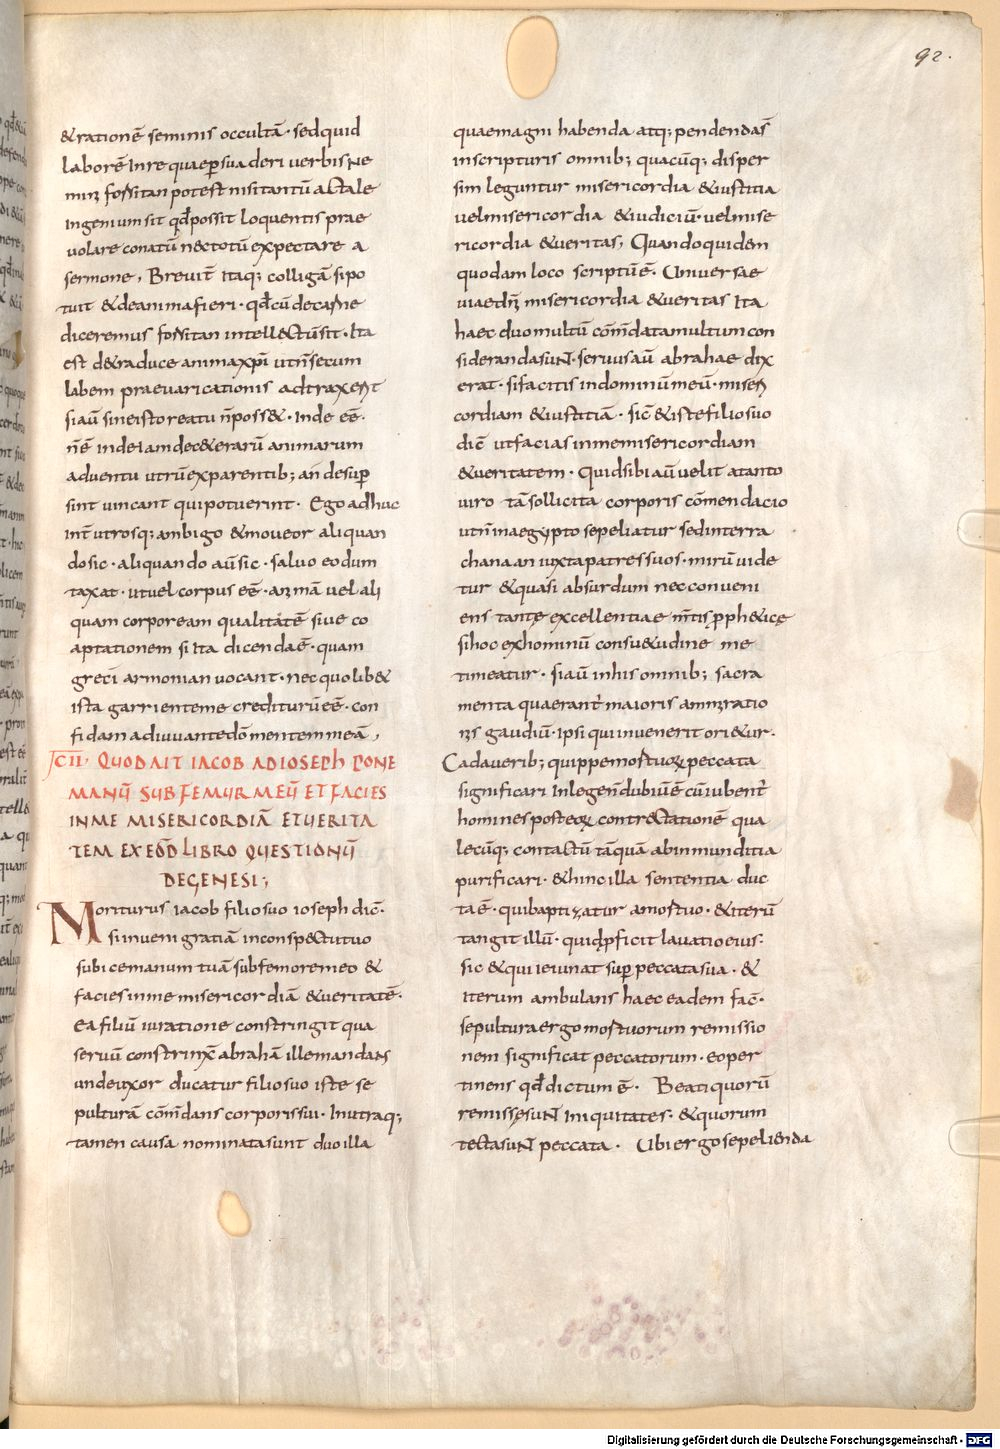 92.
&rationē seminis occultā· sed quid
laborē In re quae p̱suaderi uerbis Ne
miꝫ forsitan potest nisi tantū acTale
Ingenium sit qđ possit loquentis prae
uolare conatū nec totū expectare a
sermone, Breuit̄ Itaq; colligā si po
tuit & de anima fieri· qđ cū de carne
diceremus forsitan intellectū sit· Ita
est d& raduce anima xp̄i ut n̄ secum
labem praeuaricationis adtraxerit
si aū sine isto reatu n̄ poss&· Inde eē·
n̄ ē inde Iam de c&erarū animarum
aduentu utrū ex parentib; an desup̱
sint uincant qui potuerint· Ego adhuc
int̄ utrosq; ambigo & moueor aliquan
do sic· aliquando aū sic· saluo eo dum
taxat· ut uel corpus eē· anı̄mā uel ali
quam corpoream qualitatē siue co
aptationem si Ita dicenda ē· quam
greci armonian uocant· nec quolib&
ista garriente me crediturū eē· con
fidam adiuuante dō mentem meā,
XCII· QUOD AIT IACOB AD IOSEPH PONE
MANŪ SUB FEMUR MEŪ ET FACIES
IN ME MISERICORDIĀ ET UERITA
TEM EX EOD̄ LIBRO QUESTIONŪ
DE GENESI;
Moriturus iacob filio suo ioseph dic̄·
si inueni gratiā in conspectu tuo
subice manum tuā sub femore meo &
facies in me misericordiā & ueritatē·
ea filiū iuratione constringit qua
seruū constrinx̄ abrahā ille mandaNs
unde uxor ducatur filio suo iste se
pulturā cōm̄dans corporis sui· In utraq;
tamen causa nominata sunt duo illa
quae magni habenda atq; pendenda s̄
in scripturis omnib; quacūq; disper
sim leguntur misericordia & iustitia
uel misericordia & iudiciū· uel mise
ricordia & ueritas, Quando quidem
quodam loco scriptū ē· Uniuersae
uiae dn̄i misericordia & ueritas Ita
haec duo multū cōm̄data multum con
sideranda suNt· seruus aū abrahae dix
erat· si facitis in dominū meū· miseri
cordiam & iustitiā· sic̄ & iste filio suo
dic̄ ut facias in me misericordiam
& ueritatem· Quid sibi aū uelit a tanto
uiro tā sollicita corporis cōmendacio
ut n̄ in aegypto sepeliatur sed in terra
chanaan iuxta patres suos· mirū uide
tur & quasi absurdum nec conueni
ens tantę excellentiae m̄tis pph&icę
si hoc ex hominū consu&udine me
timeatur· si aū in his omnib; sacra
menta quaerant̄ maioris ammiratio
nis gaudiū· ipsi qui inuenerit ori&ur·
Cadauerib; quippe mortuorꝝ peccata
significari In lege n̄ dubiū ē cū iubent̄
homines post eorꝝ contrectationē qua
lecūq; contactū tāquā ab inmunditia
purificari· & hinc illa sententia duc
ta ē· qui baptizatur a mortuo· & iterū
tangit illū· quid p̱ficit lauatio eius·
sic & qui ieiunat sup̱ peccata sua· &
Iterum ambulans haec eadem fac̄·
sepultura ergo mortuorum remissio
nem significat peccatorum· eo per
tinens qđ dictum ē· Beati quorū
remissę suNt iniquitates· & quorum
tecta suNt peccata· Ubi ergo sepelienda
Digitalisierung gefördert durch die Deutsche Forschungsgemeinschaft - DFG